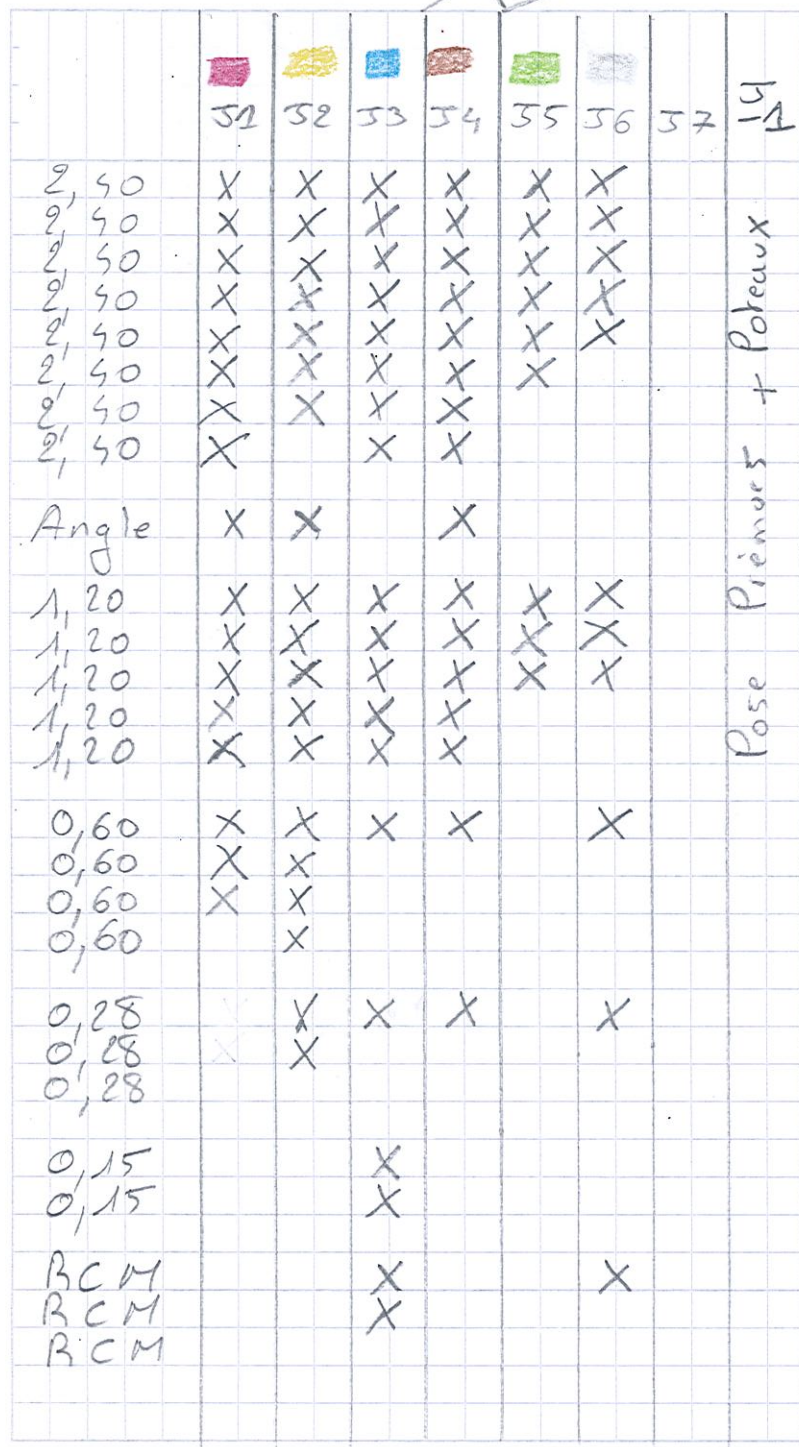 J1 J2 J3 J4 J5 J6 J7
2,40 X X X X X X
2,40 X X X X X X
2,40 X X X X X X
2,40 X X X X X X
2,40 X X X X X X
2,40 X X X X X
2,40 X X X X
2,40 X X X
Angle X X X
1,20 X X X X X X
1,20 X X X X X X
1,20 X X X X X X
1,20 X X X X
1,20 X X X X
0,60 X X X X X
0,60 X X
0,60 X X
0,60 X
0,28 X X X X
0,28 X
0,28
0,15 X
0,15 X
BCM X X
BCM X
BCM
Pose Prémurs + Poteaux